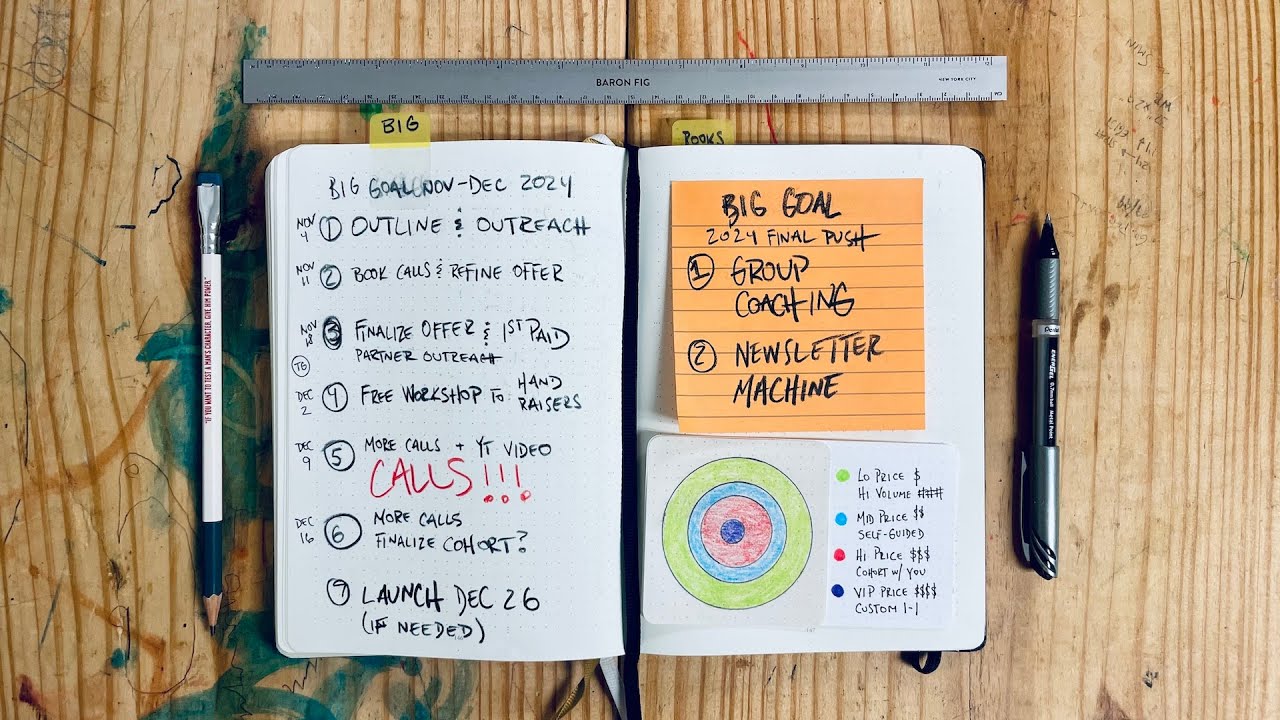 BARON FIG
NEW YORK CITY
BIG
BOOKS
BIG GOAL NOV-DEC 2024
NOV 4 ① OUTLINE & OUTREACH
NOV 11 ② BOOK CALLS & REFINE OFFER
NOV 18 ③ FINALIZE OFFER & 1ST PAID
PARTNER OUTREACH
TG
DEC 2 ④ FREE WORKSHOP TO HAND
RAISERS
DEC 9 ⑤ MORE CALLS + YT VIDEO
CALLS!!!
DEC 16 ⑥ MORE CALLS
FINALIZE COHORT?
⑦ LAUNCH DEC 26
(IF NEEDED)
BIG GOAL
2024 FINAL PUSH
① GROUP
COACHING
② NEWSLETTER
MACHINE
LO PRICE $
HI VOLUME ####
MD PRICE $$
SELF-GUIDED
HI PRICE $$$
COHORT W/ YOU
VIP PRICE $$$$
CUSTOM 1-1
"IF YOU WANT TO TEST A MAN'S CHARACTER, GIVE HIM POWER."
Pentel
ENERGEL 0.7mm ball Metal Point